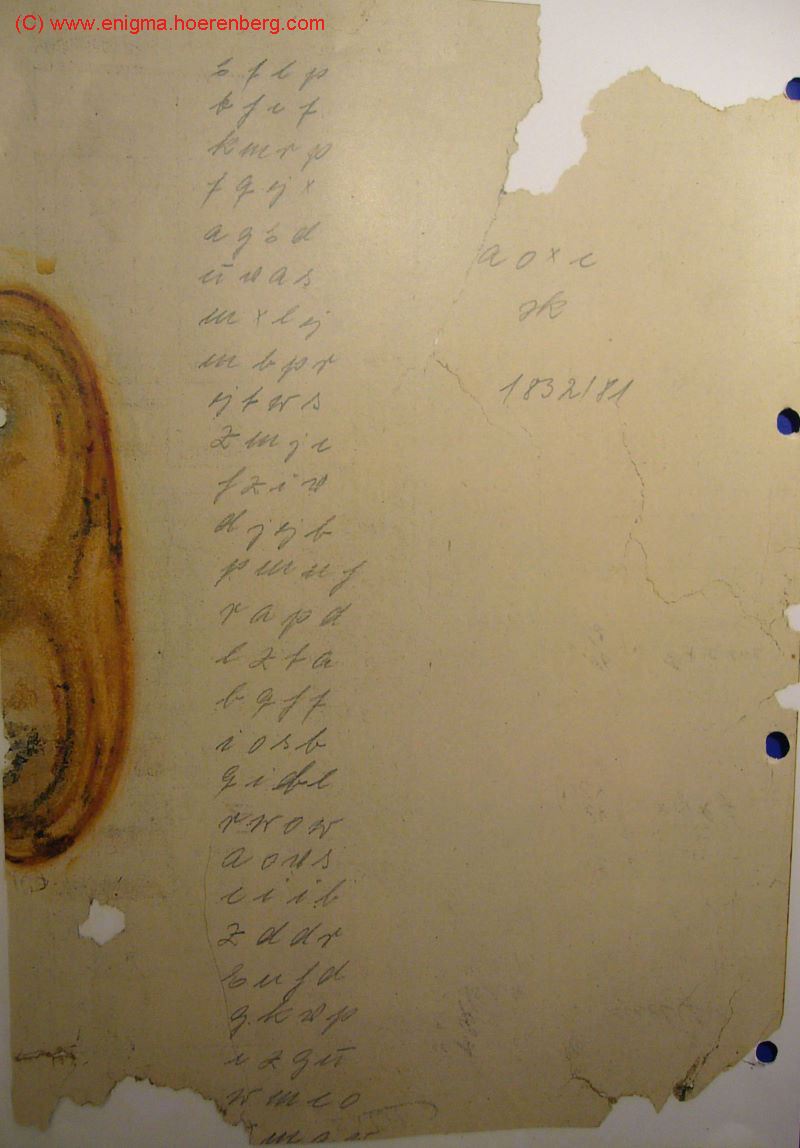 (C) www.enigma.hoerenberg.com
s f l p
k f e f
k m r p
f q y x
a g s d
u v a s
m x l y
m b p r
y t w s
z m j e
f z i v
d j y b
p m n f
r a p d
l z t a
b q f f
i o s b
q i b l
r w o w
a o v s
e i i b
z d d r
s u f d
g k v p
e z g u
w m e o
a o x e
zk
1832/81